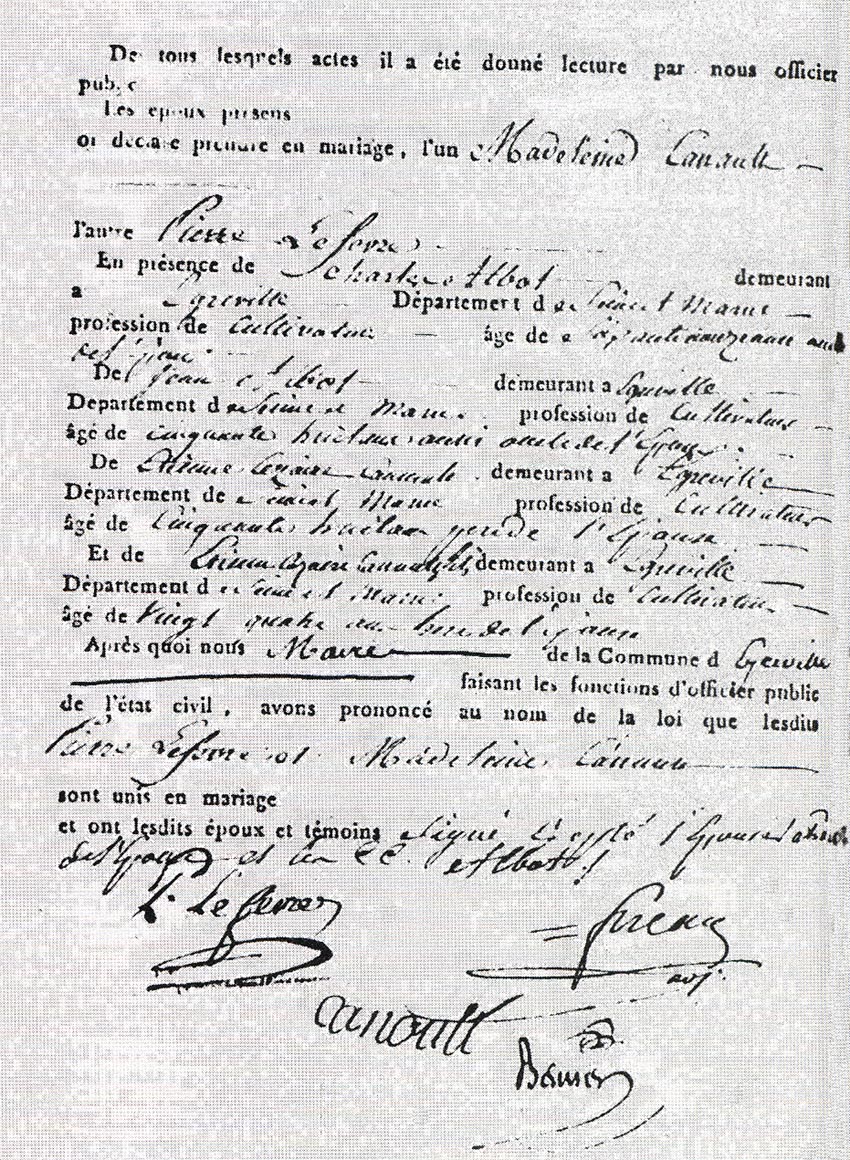 De tous lesquels actes il a été donné lecture par nous officier
public
Les époux présens
ont déclaré prendre en mariage, l'un Madeleine Canault
l'autre Pierre Lefevre
En présence de Charles Albot demeurant
a Egreville Département de Seine et Marne
profession de Cultivateur âge de
de l'épou
De Jean Albot demeurant a Egreville
Département de Seine et Marne profession de Cultivateur
âgé de cinquante huit ans aussi oncle de l'Epoux
De Etienne Cezaire Canault demeurant a Egreville
Département de Seine et Marne profession de Cultivateur
âgé de Cinquante huit ans père de l'Epouse
Et de Etienne Cezaire Canault fils demeurant a Egreville
Département de Seine et Marne profession de Cultivateur
âgé de Vingt quatre ans frere de l'Epouse
Après quoi nous Maire de la Commune d Egreville
faisant les fonctions d'officier public
de l'état civil, avons prononcé au nom de la loi que lesdits
Pierre Lefevre et Madeleine Canault
sont unis en mariage
et ont lesdits époux et témoins signé Excepté l'Epouse
de l'Epoux et les Albot
P. Lefevre
adj.
Canault